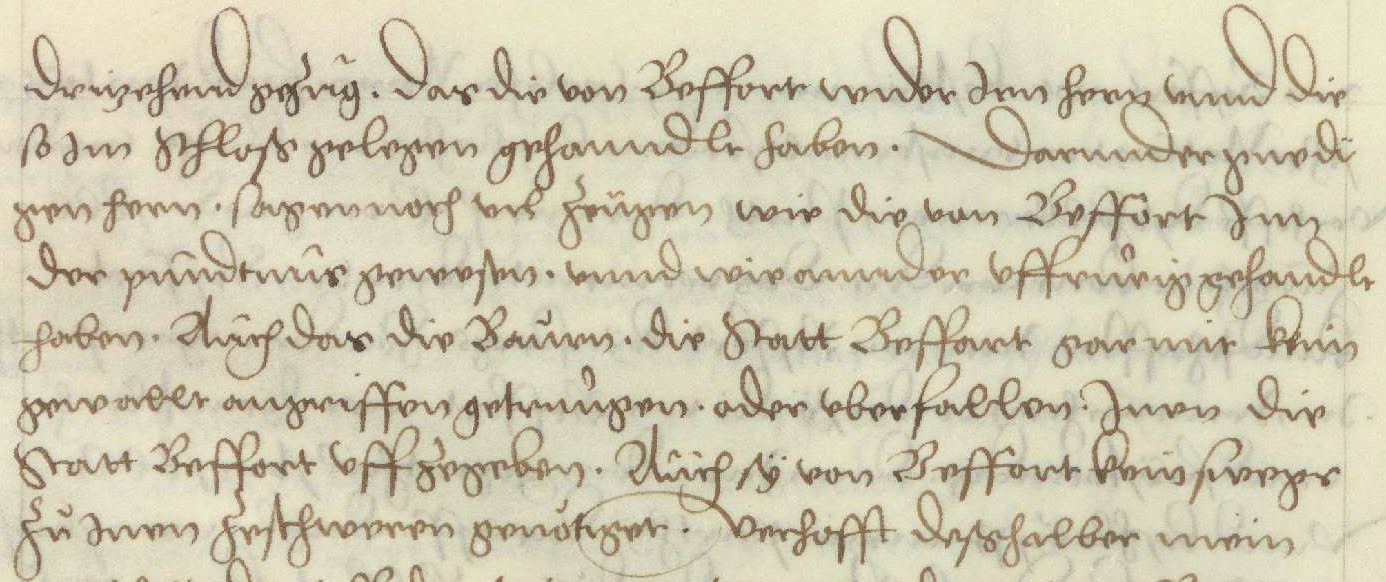 dreyzehend gezüg. das die von Beffort wider Iren hern vnnd die
so Im Schloss gelegen gehanndlt haben. Darunder gnedi
gen hern. sagen noch vil zeügen wie die von Beffort Inn
der pündtnüs gewesen. vnnd wie annder vffrürig gehandlt
haben. Aüch das die Baürn. die Statt Beffart gar mit kein
gewallt angriffen getrungen. oder vberfallen. Inen die
Statt Beffort vffzegeben. Aüch sÿ von Beffort keinswegs
zů Inen zeschweren genötiget. Verhofft deßhalber mein